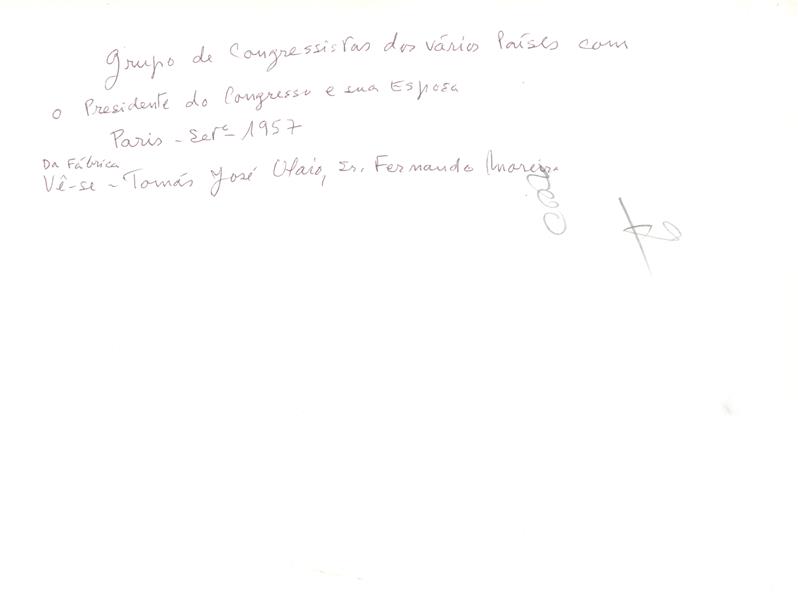 Grupo de Congressistas dos vários Países com
o Presidente do Congresso e sua Esposa
Paris - Setº - 1957
Da Fábrica
Vê-se - Tomás José Olaio, Sr. Fernando Moreira